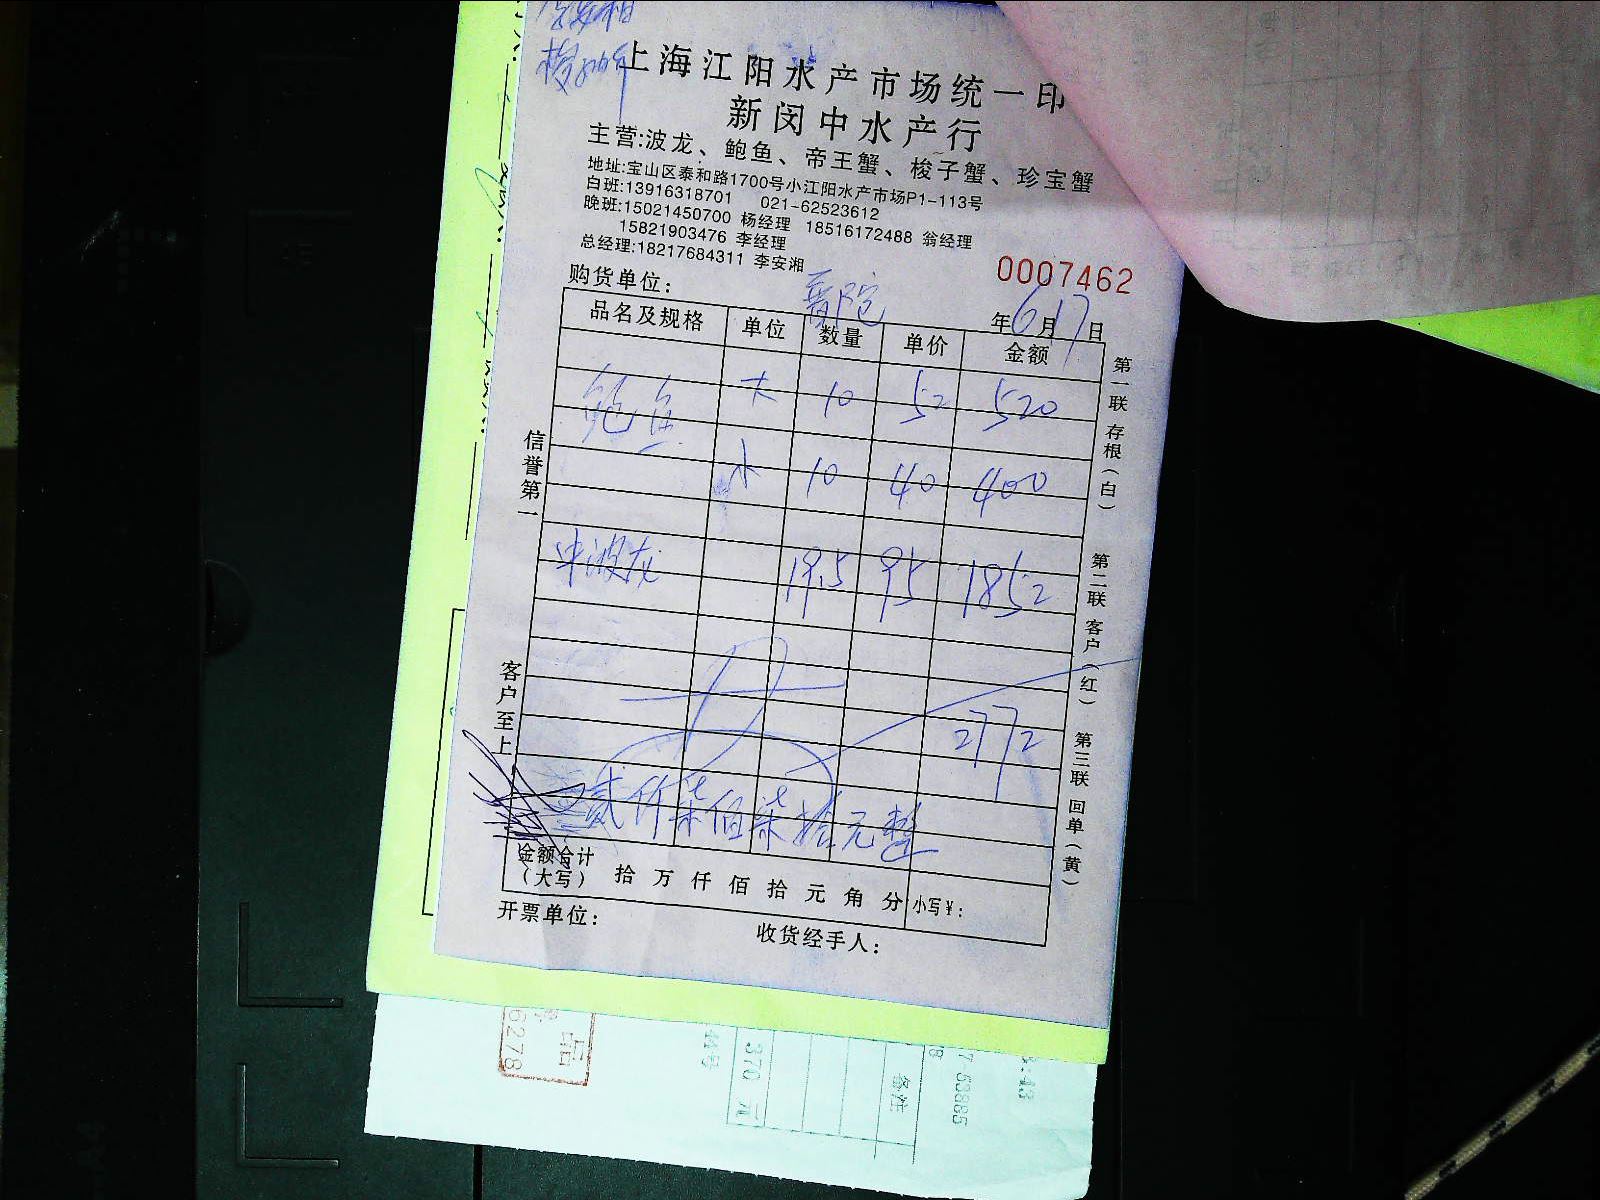 上海江阳水产市场统一印
新闵中水产行
主营:波龙、鲍鱼、帝王蟹、梭子蟹、珍宝蟹
地址:宝山区泰和路1700号小江阳水产市场P1-113号
白班:13916318701 021-62523612
晚班:15021450700 杨经理 18516172488 翁经理
15821903476 李经理
总经理:18217684311 李安湘
0007462
购货单位:
年6月17日
品名及规格 单位 数量 单价 金额
鲍鱼 大 10 52 520
小 10 40 400
中波龙 19.5 95 1852
2772
贰仟柒佰柒拾元整
金额合计
(大写) 拾 万 仟 佰 拾 元 角 分 小写¥:
开票单位: 收货经手人:
信誉第一
客户至上
第一联 存根(白)
第二联 客户(红)
第三联 回单(黄)
6278
370 元
备注
53885